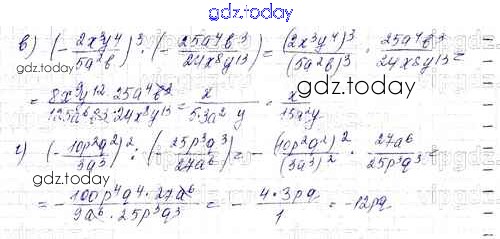 gdz.today
в) (-2x³y⁴/5a²b)³ · (-25a⁴b³/24x⁸y¹³) = (2x³y⁴)³/(5a²b)³ · 25a⁴b³/24x⁸y¹³ =
= 8x⁹y¹² · 25a⁴b³/125a⁶b³ · 24x⁸y¹³ = x/5·3a²y = x/15a²y
г) (-10p²q²/3a³)² : (-25p³q³/27a⁶) = -(10p²q²)²/(3a³)² · 27a⁶/25p³q³ =
= -100p⁴q⁴ · 27a⁶/9a⁶ · 25p³q³ = -4·3pq/1 = -12pq
gdz.today